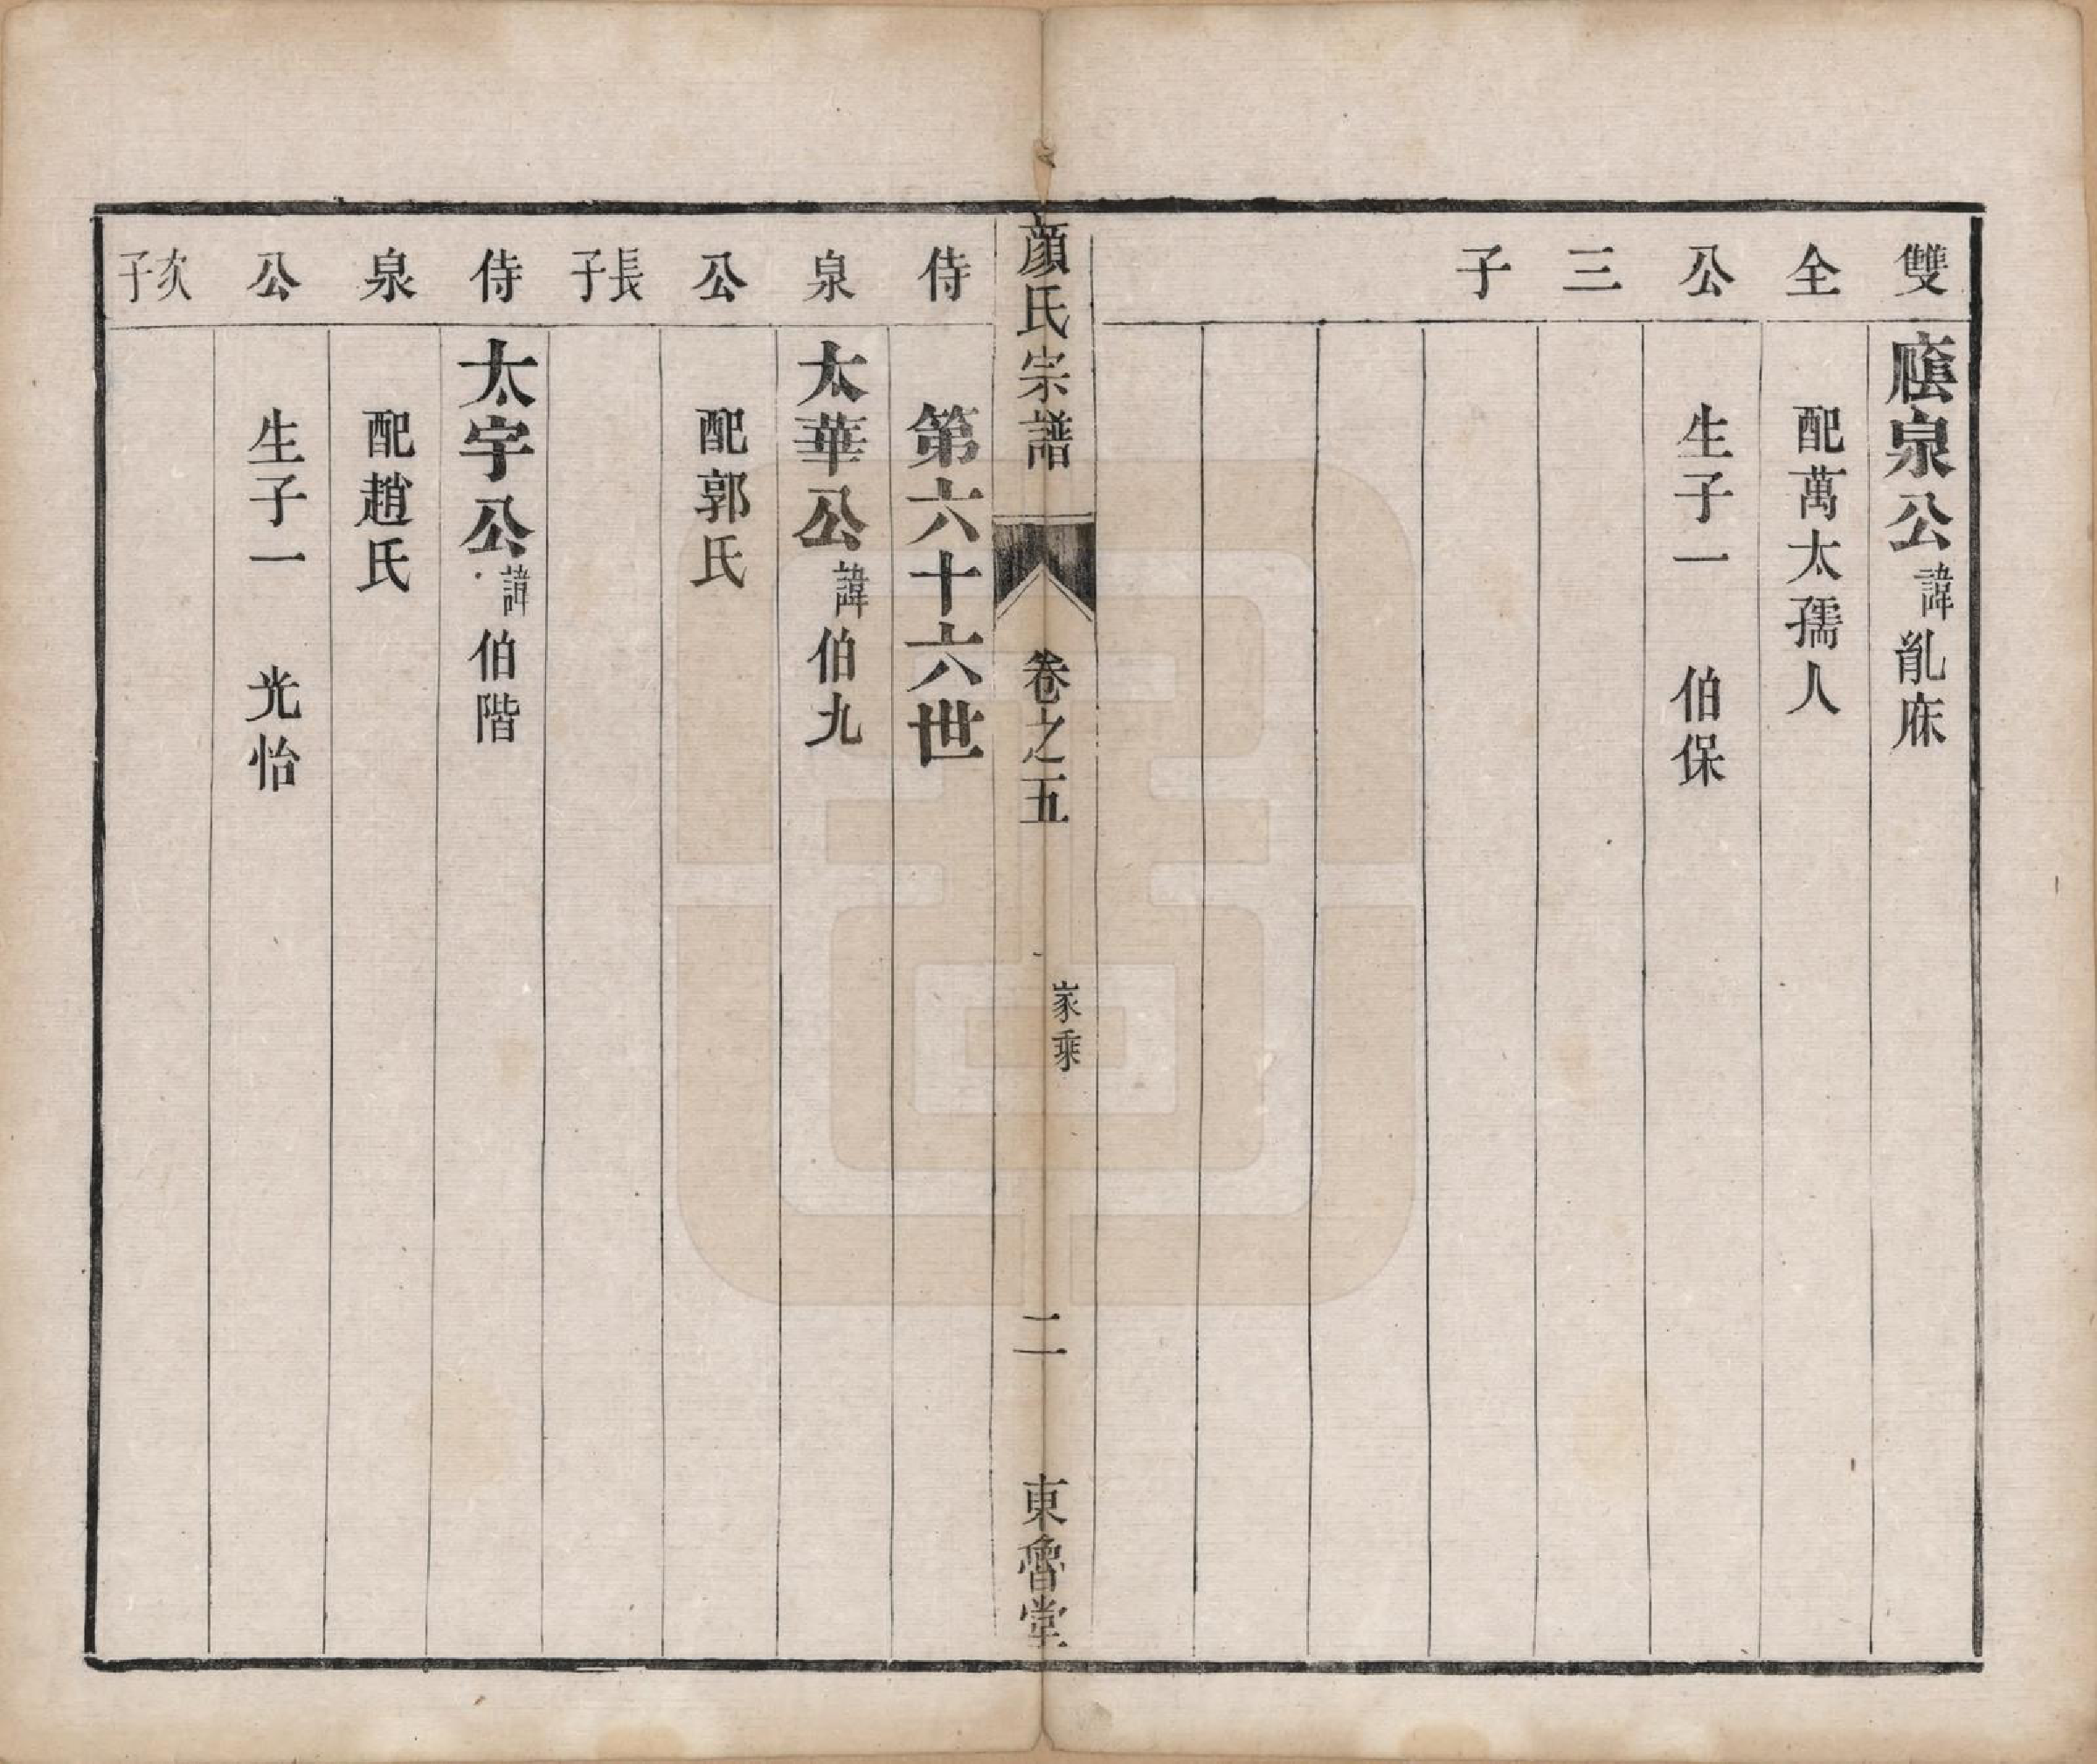 雙全公三子
廕泉公 諱胤庥
配萬太孺人
生子一 伯保
顏氏宗譜 卷之五 家乘 二 東魯堂
第六十六世
侍泉公長子
太華公 諱伯九
配郭氏
侍泉公次子
太宇公 諱伯階
配趙氏
生子一 光怡